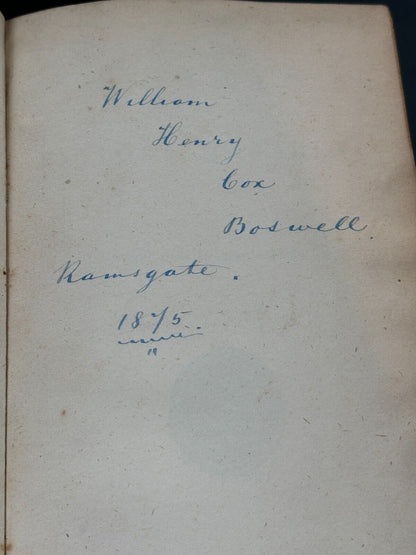 William
Henry
Cox
Boswell
Ramsgate.
1875.